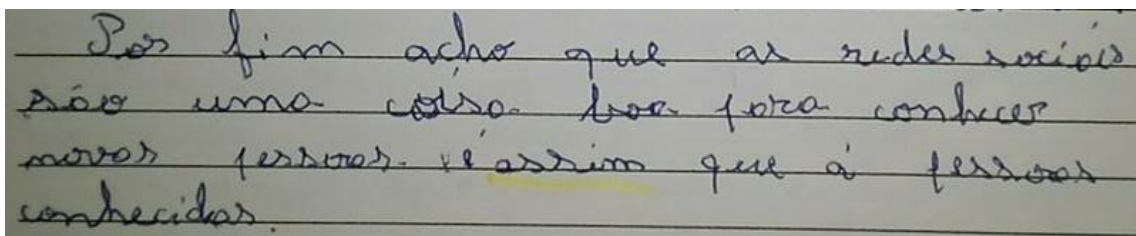 Por fim acho que as redes sociáis
são uma coisa boa para conhecer
novas pessoas. é assim que á pessoas
conhecidas.